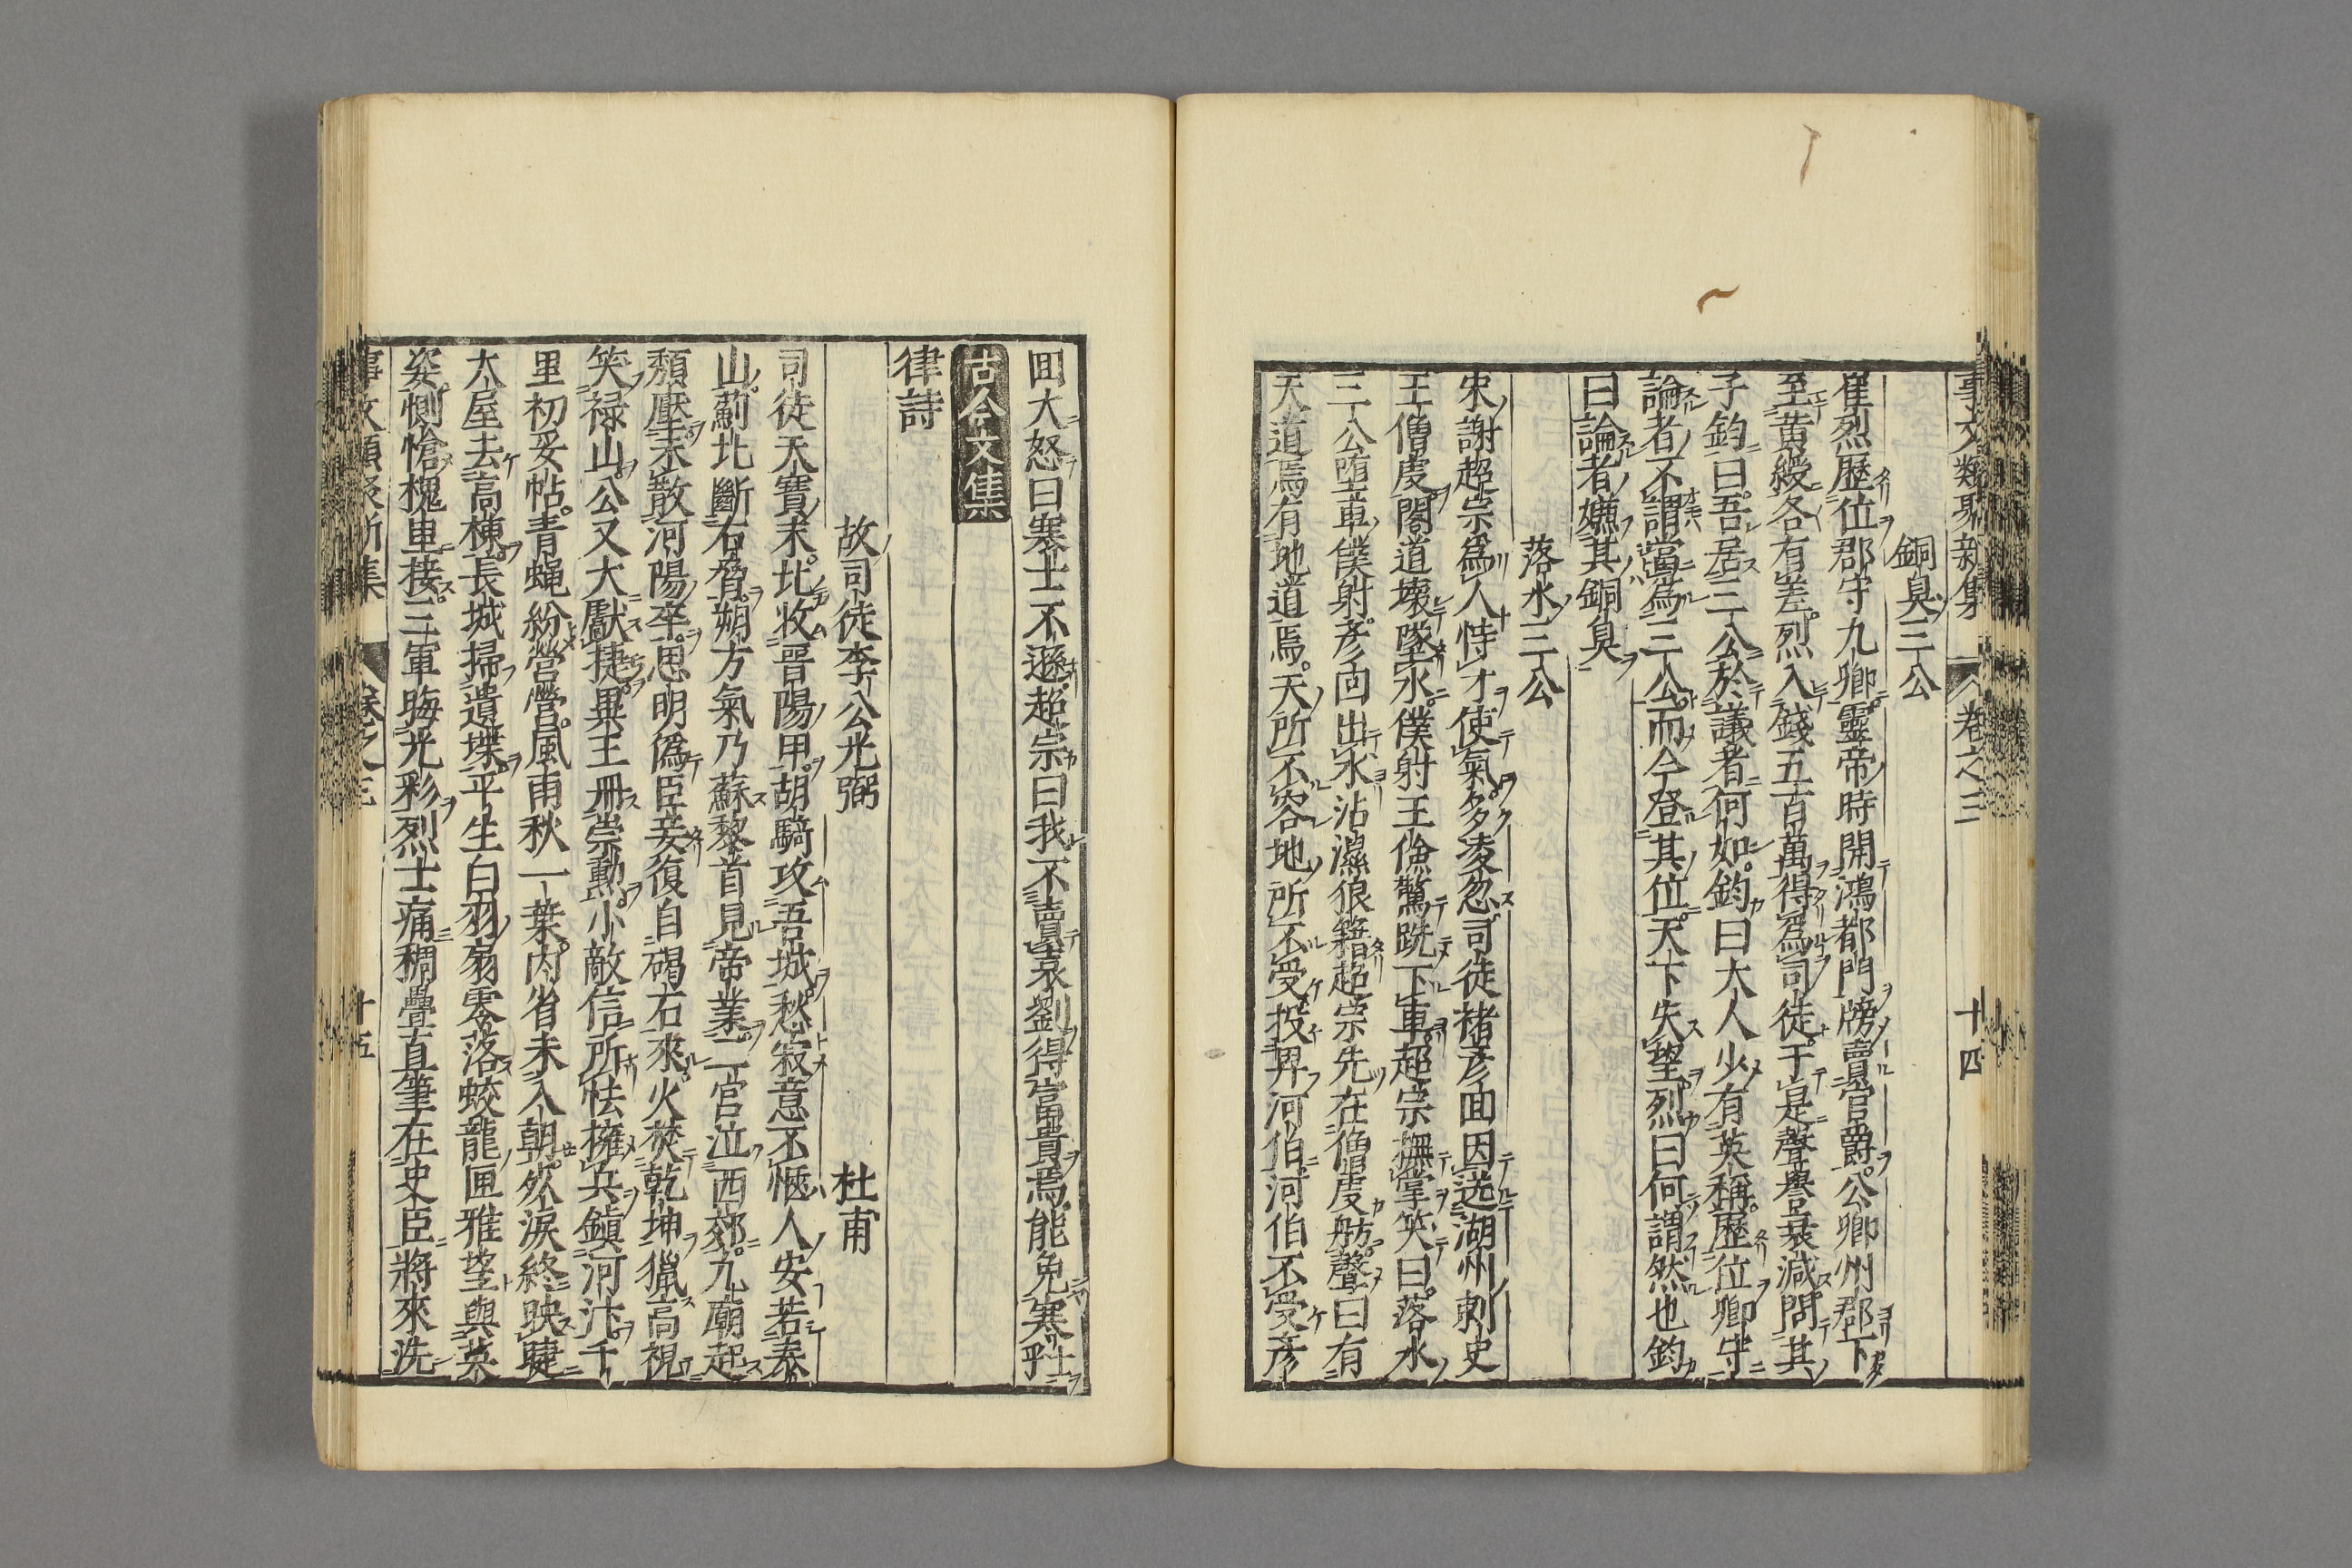 事文類聚新集 卷之三 十四
銅臭三公
崔烈歷位郡守九卿靈帝時開鴻都門牓賣官爵公卿州郡下
至黃綬各有差烈入錢五百萬得爲司徒于是聲譽衰減問其
子鈞曰吾居三公於議者何如鈞曰大人少有英稱歷位卿守
論者不謂當爲三公而今登其位天下失望烈曰何謂然也鈞
曰論者嫌其銅臭
落水三公
宋謝超宗爲人恃才使氣多凌忽司徒褚彥囬因送湖州刺史
王僧虔閣道壞墜水僕射王儉驚跣下車超宗撫掌笑曰落水
三公墮車僕射彥囬出水沾濕狼籍超宗先在僧虔舫聲曰有
天道焉有地道焉天所不容地所不受投畀河伯河伯不受彥
囬大怒曰寒士不遜超宗曰我不賣袁劉得富貴焉能免寒士乎
古今文集
律詩
故司徒李公光弼 杜甫
司徒天寶末北收晉陽甲胡騎攻吾城愁寂意不愜人安若泰
山薊北斷右脅朔方氣乃蘇黎首見帝業二宮泣西郊九廟起
頹壓未散河陽卒思明僞臣妾復自碣石來火焚乾坤獵高視
笑祿山公又大獻捷異王冊崇勳小敵信所怯擁兵鎭河汴千
里初妥帖青蠅紛營營風雨秋一葉內省未入朝然淚終映睫
大屋去高棟長城掃遺堞平生白羽扇零落蛟龍匣雅望與英
姿惻愴槐里接三軍晦光彩烈士痛稠疊直筆在史臣將來洗
卷之三 十五